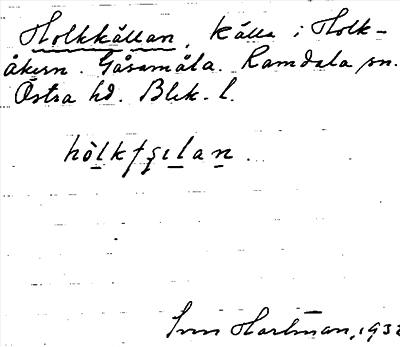 Holkkällan. Källa i Holk-
åkern. Gåsamåla. Ramdala sn.
Östra hd. Blek. l.
hòlkfs̨ılan.
Sven Hartman, 193